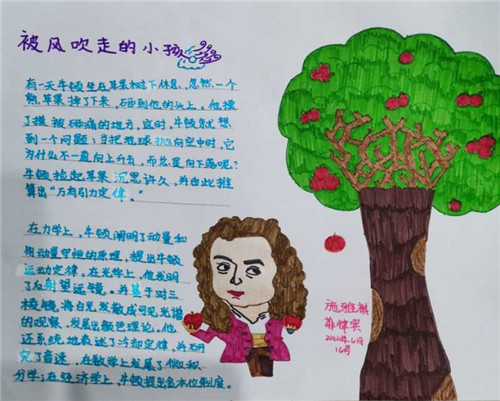 被风吹走的小孩
有一天牛顿坐在苹果树下休息、忽然一个
熟苹果掉下来，砸到他的头上，他摸
了摸被砸痛的地方，这时，牛顿就想
到一个问题：当把地球抛向空中时，它
为什么不一直向上升，而总是向下落呢？
牛顿捡起苹果沉思许久，并由此推
算出“万有引力定律”。
在力学上，牛顿阐明了动量和
角动量守恒的原理，提出牛顿
运动定律，在光学上，他发明
了反射望远镜，并基于对三
棱镜将白光发散成可见光谱
的观察，发展出颜色理论。他
还系统地表述了冷却定律，并研
究了音速，在数学上发展了微积
分学；在经济学上，牛顿提出金本位制度。
施雅棋
菲律宾
年6月
16号